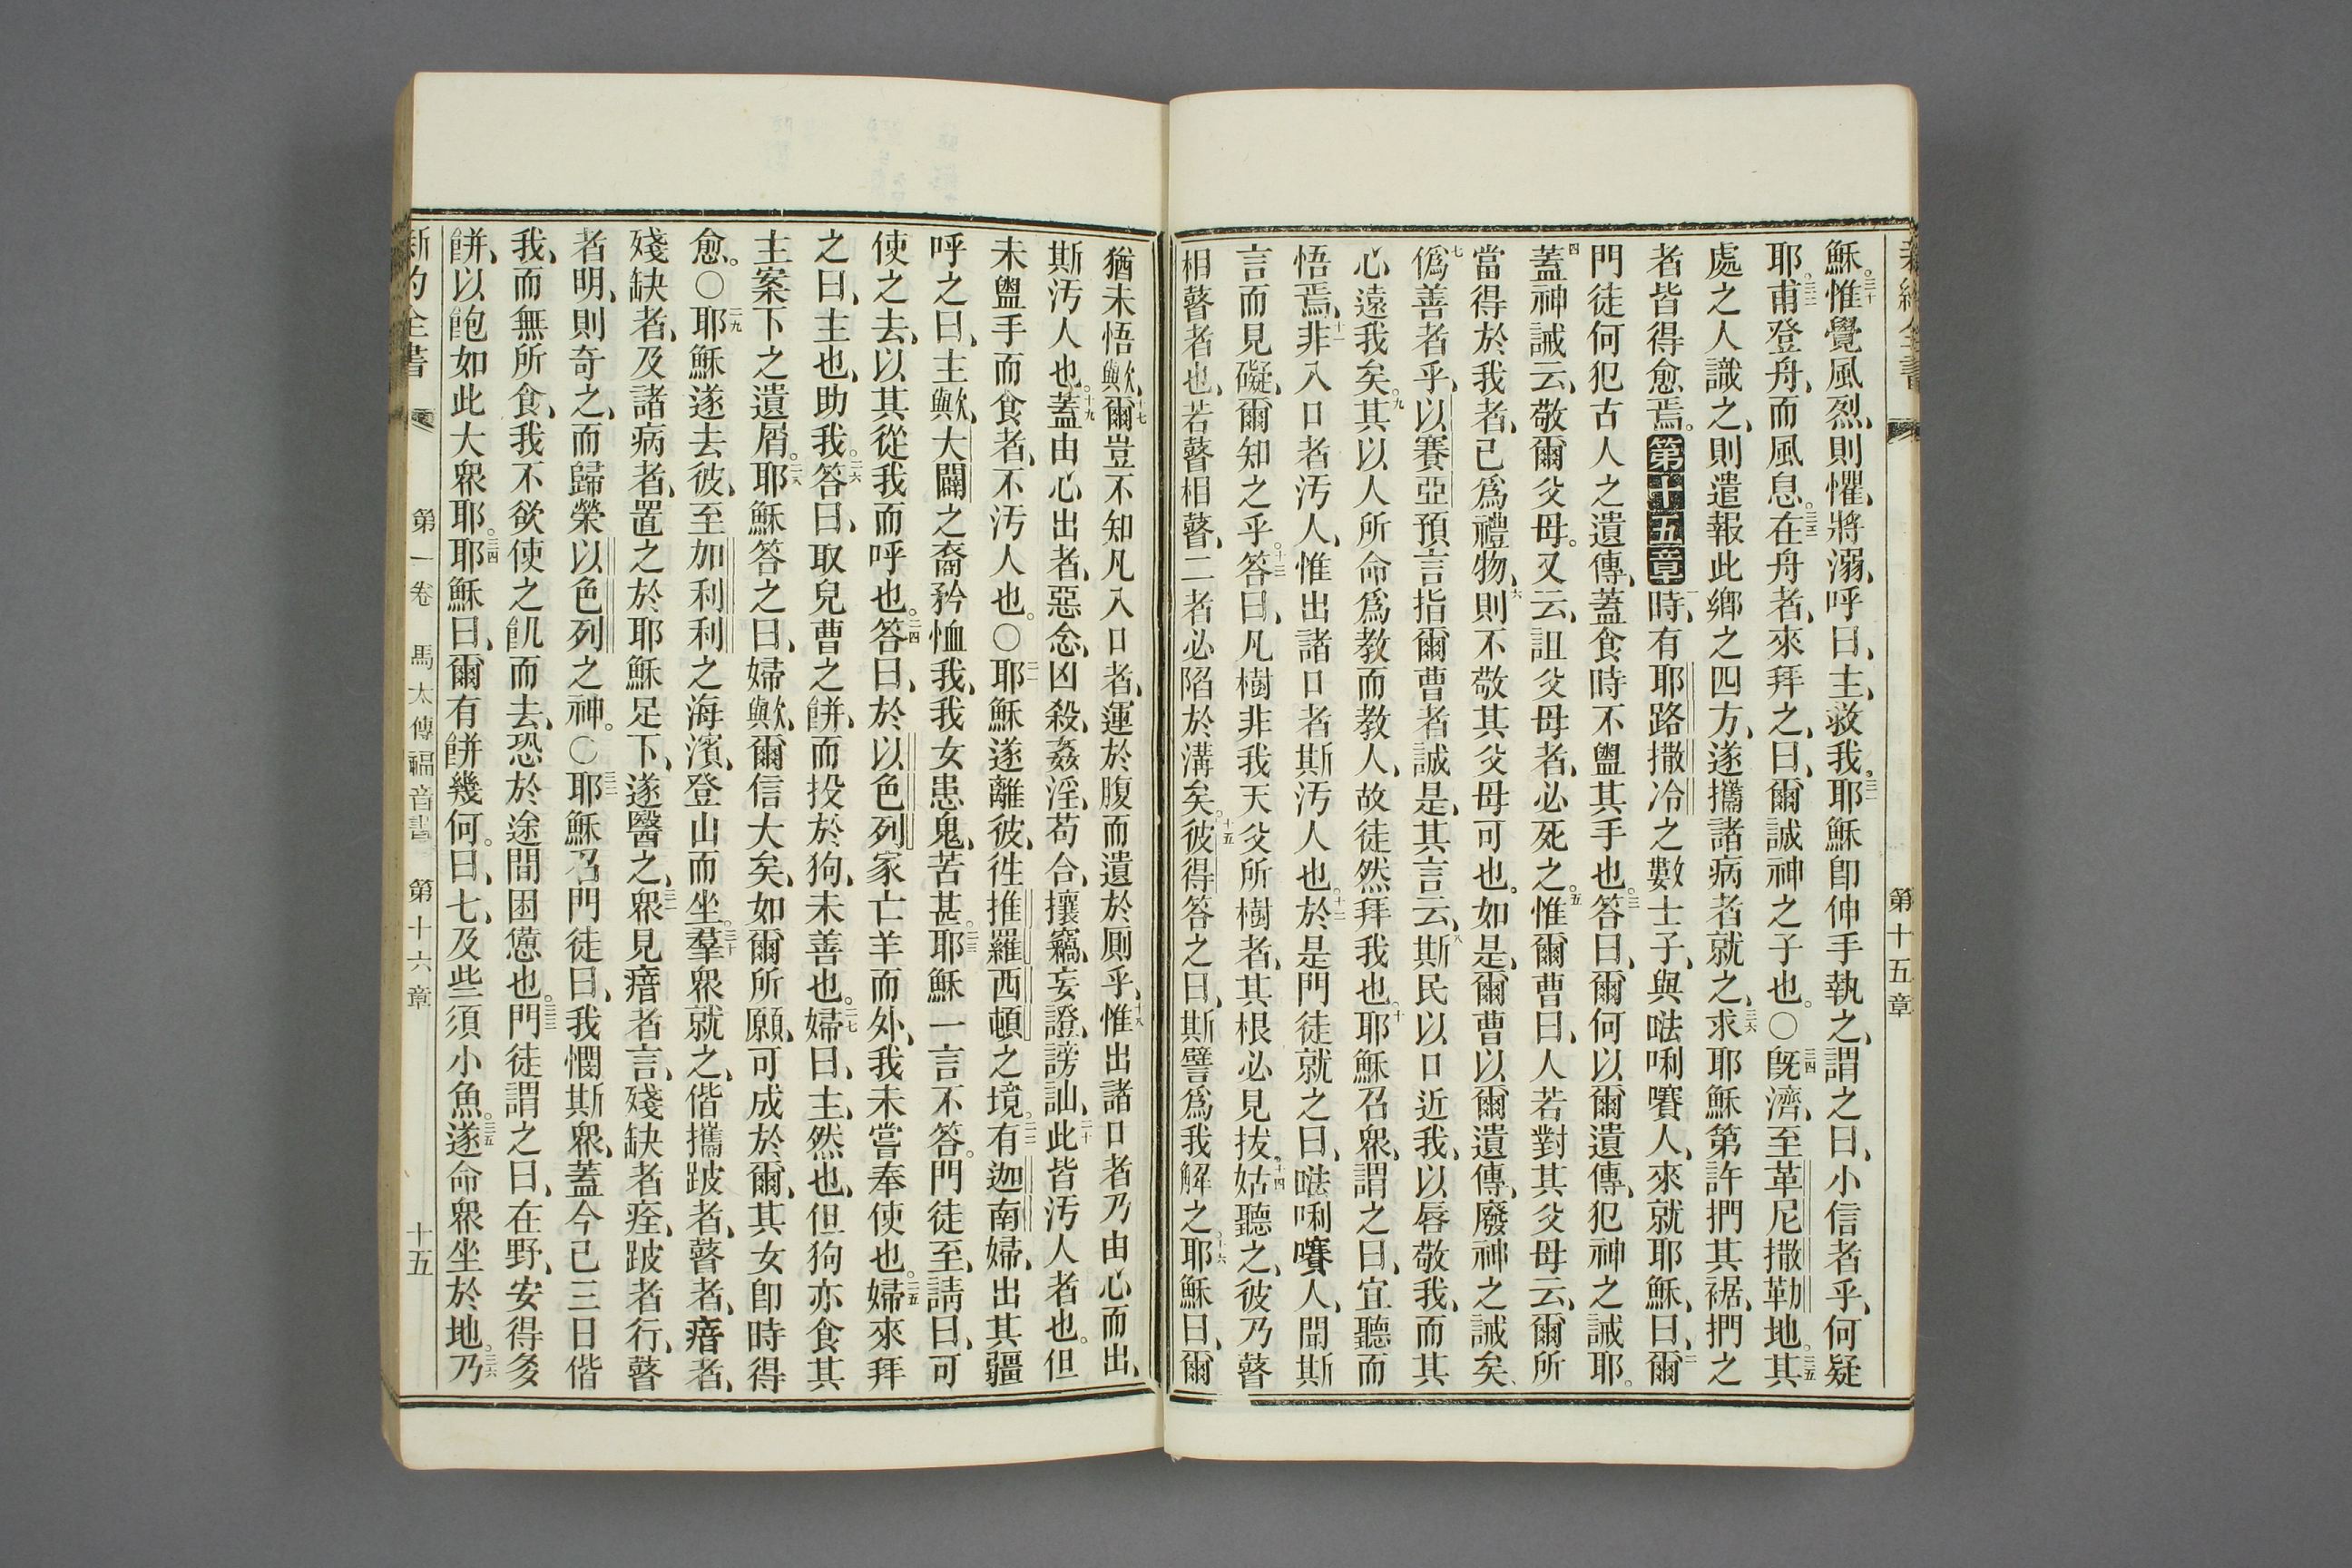 第十五章
穌。三十惟覺風烈、則懼、將溺、呼曰、主、救我。三一耶穌卽伸手執之、謂之曰、小信者乎、何疑
耶。三二甫登舟、而風息。三三在舟者、來拜之、曰、爾誠神之子也。○三四旣濟、至革尼撒勒地。三五其
處之人識之、則遣報此鄉之四方、遂攜諸病者就之、三六求耶穌第許捫其裾、捫之
者皆得愈焉。第十五章一時、有耶路撒冷之數士子、與𠵽唎嚽人、來就耶穌、曰、二爾
門徒何犯古人之遺傳、蓋食時不盥其手也。三答曰、爾何以爾遺傳、犯神之誡耶。
四蓋神誡云、敬爾父母。又云、詛父母者、必死之。五惟爾曹曰、人若對其父母云、爾所
當得於我者、已爲禮物、六則不敬其父母可也。如是、爾曹以爾遺傳、廢神之誡矣、
七僞善者乎、以賽亞預言指爾曹者誠是、其言云、八斯民以口近我、以唇敬我、而其
心遠我矣。九其以人所命爲教而教人、故徒然拜我也。十耶穌召衆、謂之曰、宜聽而
悟焉、十一非入口者汚人、惟出諸口者斯汚人也。十二於是門徒就之曰、唎人、聞斯
言而見礙、爾知之乎。十三答曰、凡樹非我天父所樹者、其根必見拔。十四姑聽之、彼乃瞽
相瞽者也、若瞽相瞽、二者必陷於溝矣。十五彼得答之曰、斯譬爲我解之。十六耶穌曰、爾
猶未悟歟、十七爾豈不知凡入口者、運於腹而遺於厠乎、十八惟出諸口者乃由心而出、
斯汚人也。十九蓋由心出者、惡念、凶殺、姦淫、苟合、攘竊、妄證、謗訕、二十此皆汚人者也。但
未盥手而食者、不汚人也。○二一耶穌遂離彼、徃推羅西頓之境。二二有迦南婦、出其疆
呼之曰、主歟、大闢之裔矜恤我、我女患鬼、苦甚。二三耶穌一言不答。門徒至、請曰、可
使之去、以其從我而呼也。二四答曰、於以色列家亡羊而外、我未嘗奉使也。二五婦來拜
之曰、主也、助我。二六答曰、取兒曹之餅、而投於狗、未善也。二七婦曰、主、然也、但狗亦食其
主案下之遺屑。二八耶穌答之曰、婦歟、爾信大矣、如爾所願、可成於爾、其女卽時得
愈。○二九耶穌遂去彼、至加利利之海濱、登山而坐。三十羣衆就之、偕攜跛者、瞽者、瘖者、
殘缺者、及諸病者、置之於耶穌足下、遂醫之、三一衆見瘖者言、殘缺者痊、跛者行、瞽
者明、則奇之、而歸榮以色列之神。○三二耶穌召門徒曰、我憫斯衆、蓋今已三日偕
我、而無所食、我不欲使之飢而去、恐於途間困憊也。三三門徒謂之曰、在野、安得多
餅、以飽如此大衆耶。三四耶穌曰、爾有餅幾何。曰、七、及些須小魚。三五遂命衆坐於地。三六乃
新約全書 第一卷 馬太傳福音書 第十六章 十五